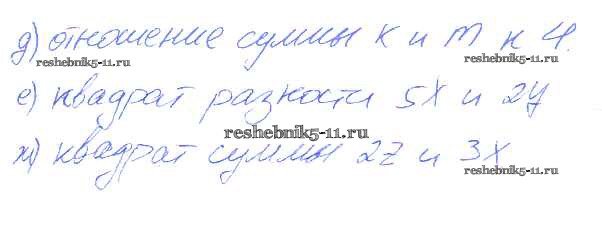 д) отношение суммы k и m к 4.
reshebnik5-11.ru reshebnik5-11.ru
е) квадрат разности 5x и 2y
reshebnik5-11.ru
ж) квадрат суммы 2z и 3x
reshebnik5-11.ru reshebnik5-11.ru